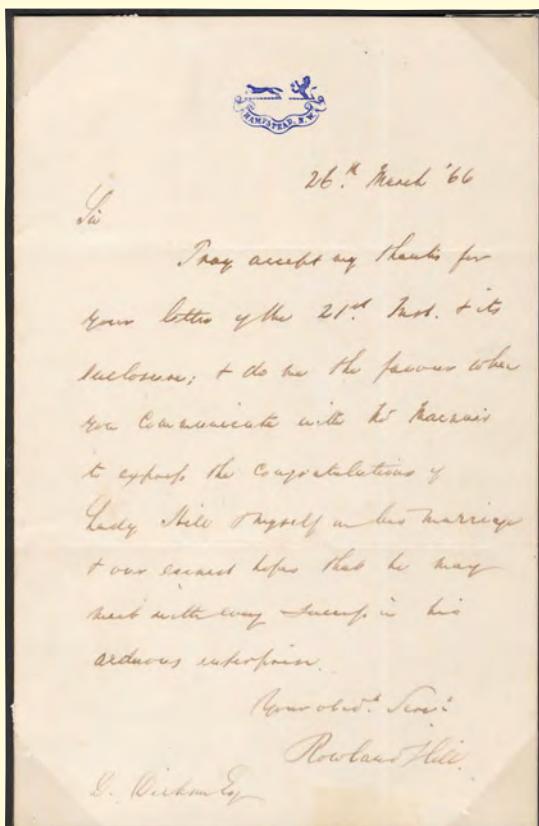 HAMPSTEAD. N.W.
26th. March '66
Sir
Pray accept my thanks for
your letter of the 21st. Inst. & its
enclosure; & do me the favour when
you communicate with Mr
to express the congratulations of
Lady Hill & myself on his marriage
& our earnest hopes that he may
meet with every success in his
arduous enterprise.
Your obedt. Servt.
Rowland Hill.
Esq